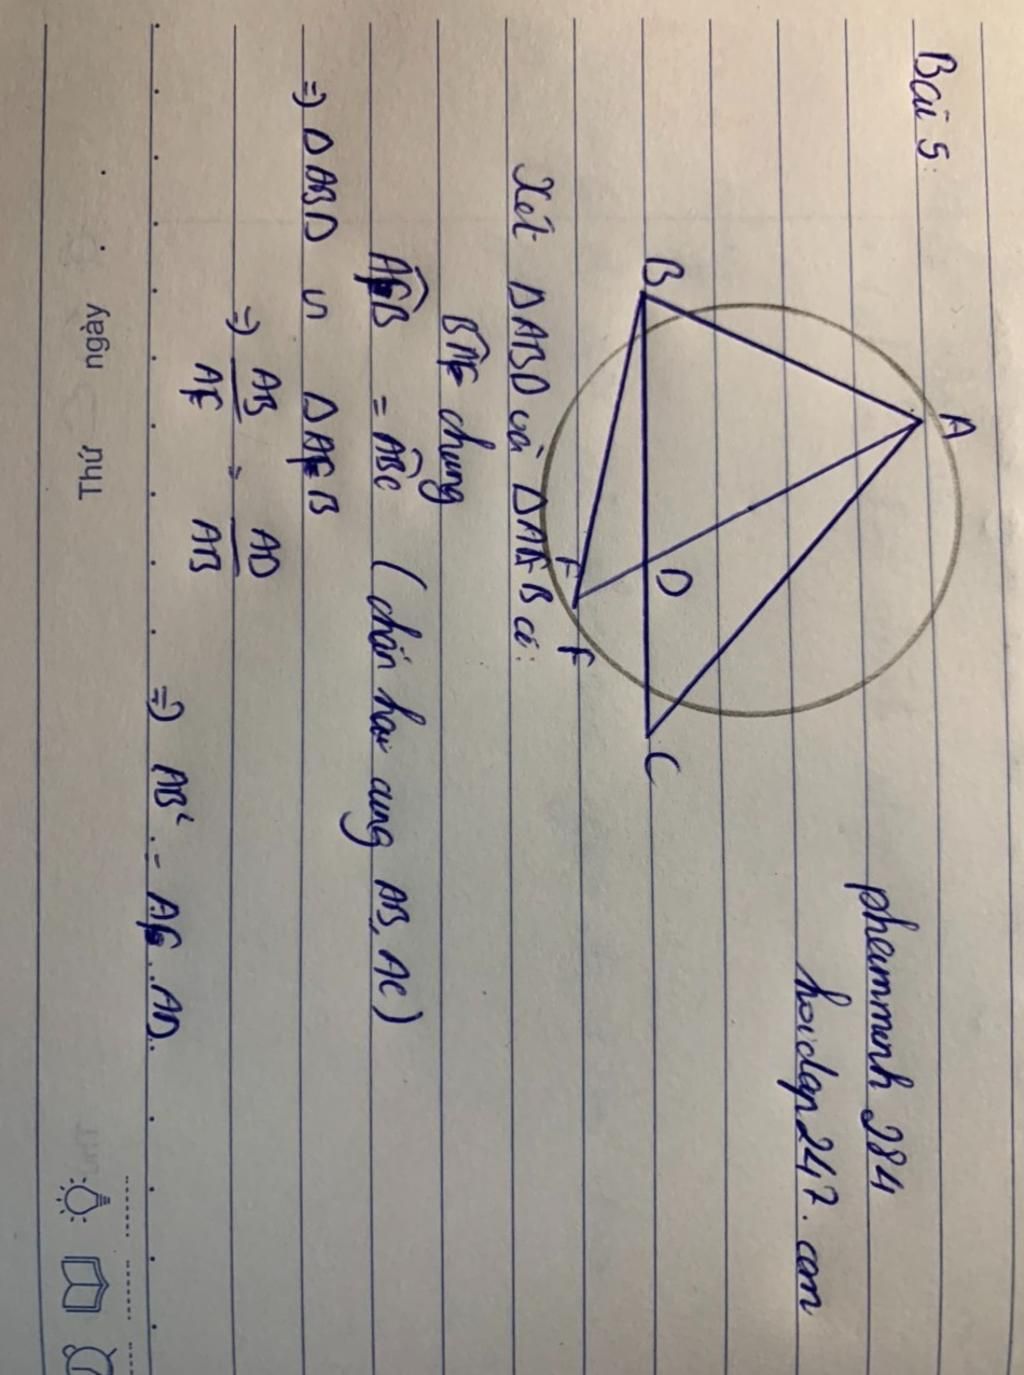 Bài 5:
phamminh 284
hoidap247.com
A
B
D
C
F
F
Xét ΔABD và ΔAFB có:
BAF chung
AFB = ABC (chắn hai cung AB, AC)
=> ΔABD ∽ ΔAFB
=> AB/AF = AD/AB
=> AB² = AF.AD.
Thứ ngày